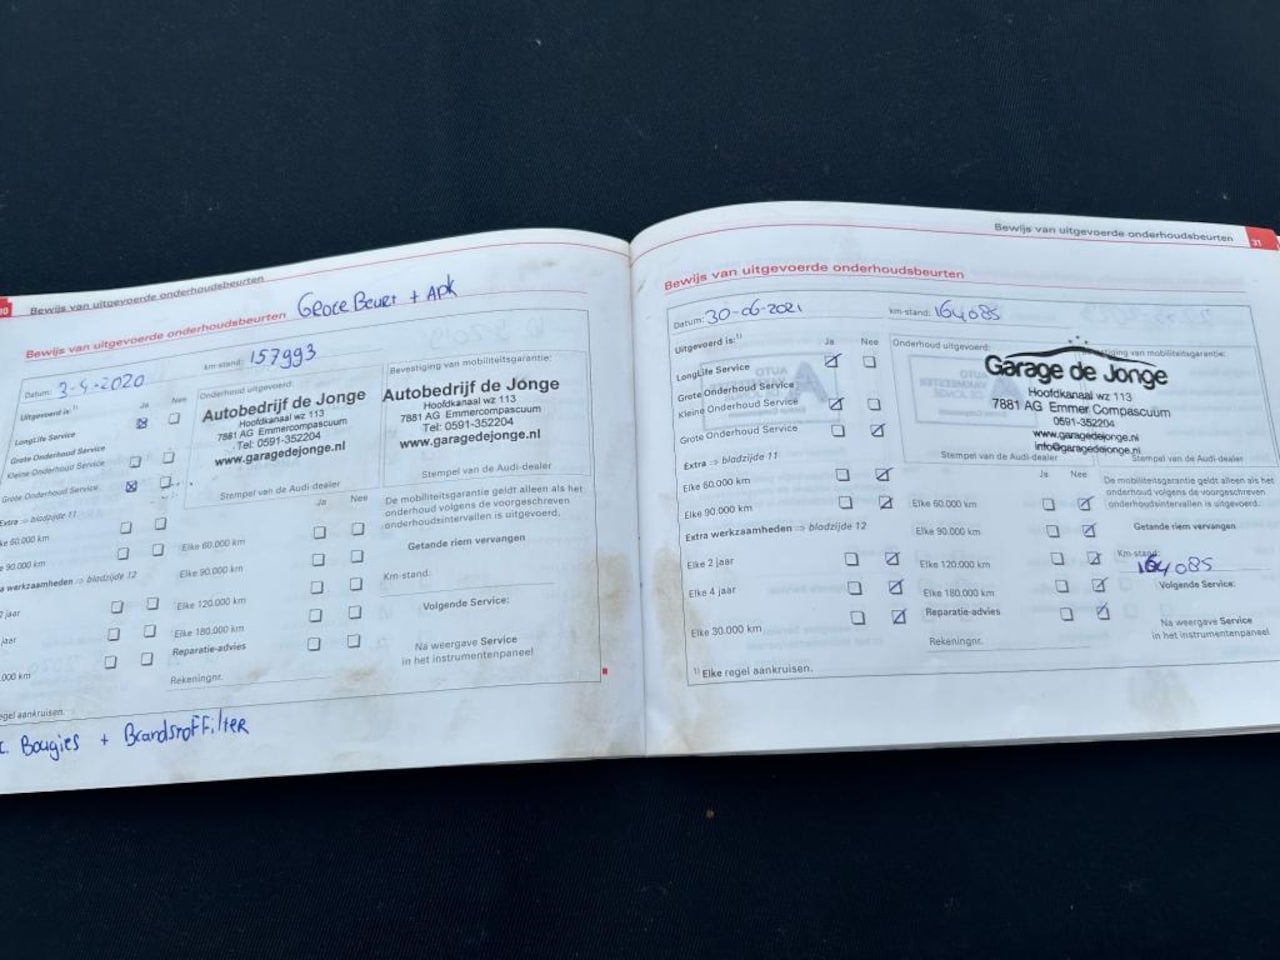 Bewijs van uitgevoerde onderhoudsbeurten
Bewijs van uitgevoerde onderhoudsbeurten
Groce Beurt + Apk
Datum: 3-4-2020
km-stand: 157993
Uitgevoerd is: 1)
Ja Nee
LongLife Service
Grote Onderhoud Service
Kleine Onderhoud Service
Grote Onderhoud Service
Extra ⇨ bladzijde 11
ke 60.000 km
e 90.000 km
a werkzaamheden ⇨ bladzijde 12
2 jaar
jaar
.000 km
Onderhoud uitgevoerd:
Autobedrijf de Jonge
Hoofdkanaal wz 113
7881 AG Emmercompascuum
Tel: 0591-352204
www.garagedejonge.nl
Stempel van de Audi-dealer
Ja Nee
Elke 60.000 km
Elke 90.000 km
Elke 120.000 km
Elke 180.000 km
Reparatie-advies
Rekeningnr.
Bevestiging van mobiliteitsgarantie:
Autobedrijf de Jonge
Hoofdkanaal wz 113
7881 AG Emmercompascuum
Tel: 0591-352204
www.garagedejonge.nl
Stempel van de Audi-dealer
De mobiliteitsgarantie geldt alleen als het
onderhoud volgens de voorgeschreven
onderhoudsintervallen is uitgevoerd.
Getande riem vervangen
Km-stand:
Volgende Service:
Na weergave Service
in het instrumentenpaneel
egel aankruisen.
Bougies + Brandstoffilter
Bewijs van uitgevoerde onderhoudsbeurten
31
Bewijs van uitgevoerde onderhoudsbeurten
Datum: 30-06-2021
km-stand: 164085
Uitgevoerd is: 1)
Ja Nee
LongLife Service
Grote Onderhoud Service
Kleine Onderhoud Service
Grote Onderhoud Service
Extra ⇨ bladzijde 11
Elke 60.000 km
Elke 90.000 km
Extra werkzaamheden ⇨ bladzijde 12
Elke 2 jaar
Elke 4 jaar
Elke 30.000 km
1) Elke regel aankruisen.
Onderhoud uitgevoerd:
iging van mobiliteitsgarantie:
Garage de Jonge
Hoofdkanaal wz 113
7881 AG Emmer Compascuum
0591-352204
www.garagedejonge.nl
info@garagedejonge.nl
Stempel van de Audi-dealer
Stempel van de Audi-dealer
Ja Nee
Elke 60.000 km
Elke 90.000 km
Elke 120.000 km
Elke 180.000 km
Reparatie-advies
Rekeningnr.
De mobiliteitsgarantie geldt alleen als het
onderhoud volgens de voorgeschreven
onderhoudsintervallen is uitgevoerd.
Getande riem vervangen
Km-stand:
164085
Volgende Service:
Na weergave Service
in het instrumentenpaneel